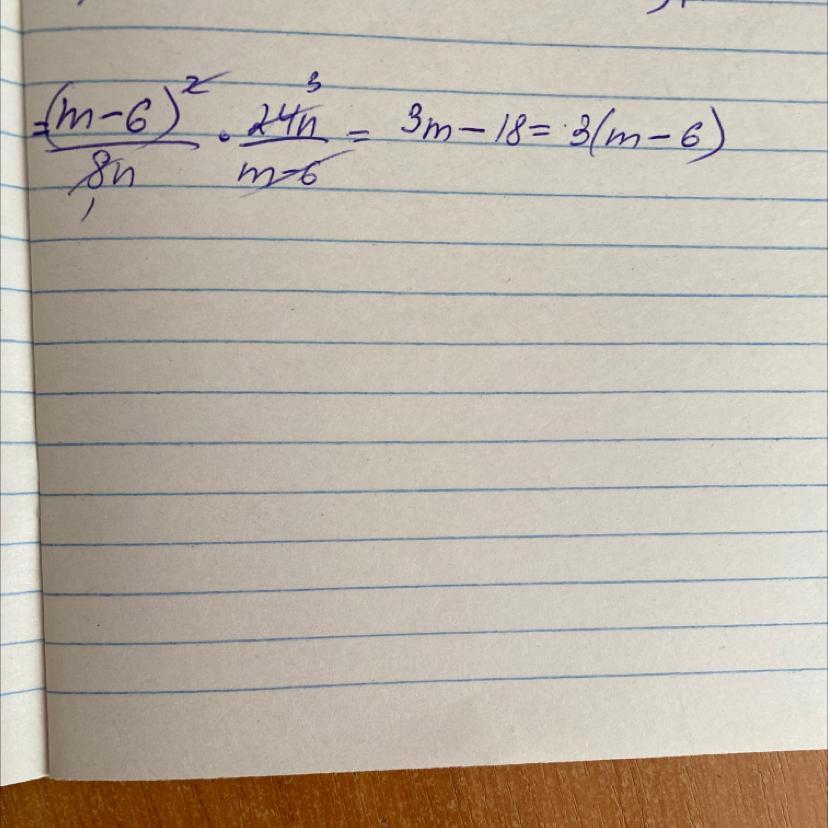 = (m-6)²/8n · 24n/m-6 = 3m-18 = 3(m-6)
3
1